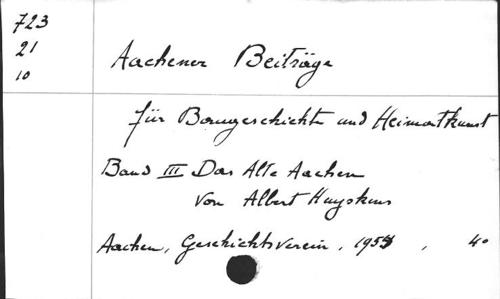 723
21
10
Aachener Beiträge
für Baugeschichte und Heimatkunst
Band III Das Alte Aachen
von Albert Huyskens
Aachen, Geschichtsverein, 1953, 40